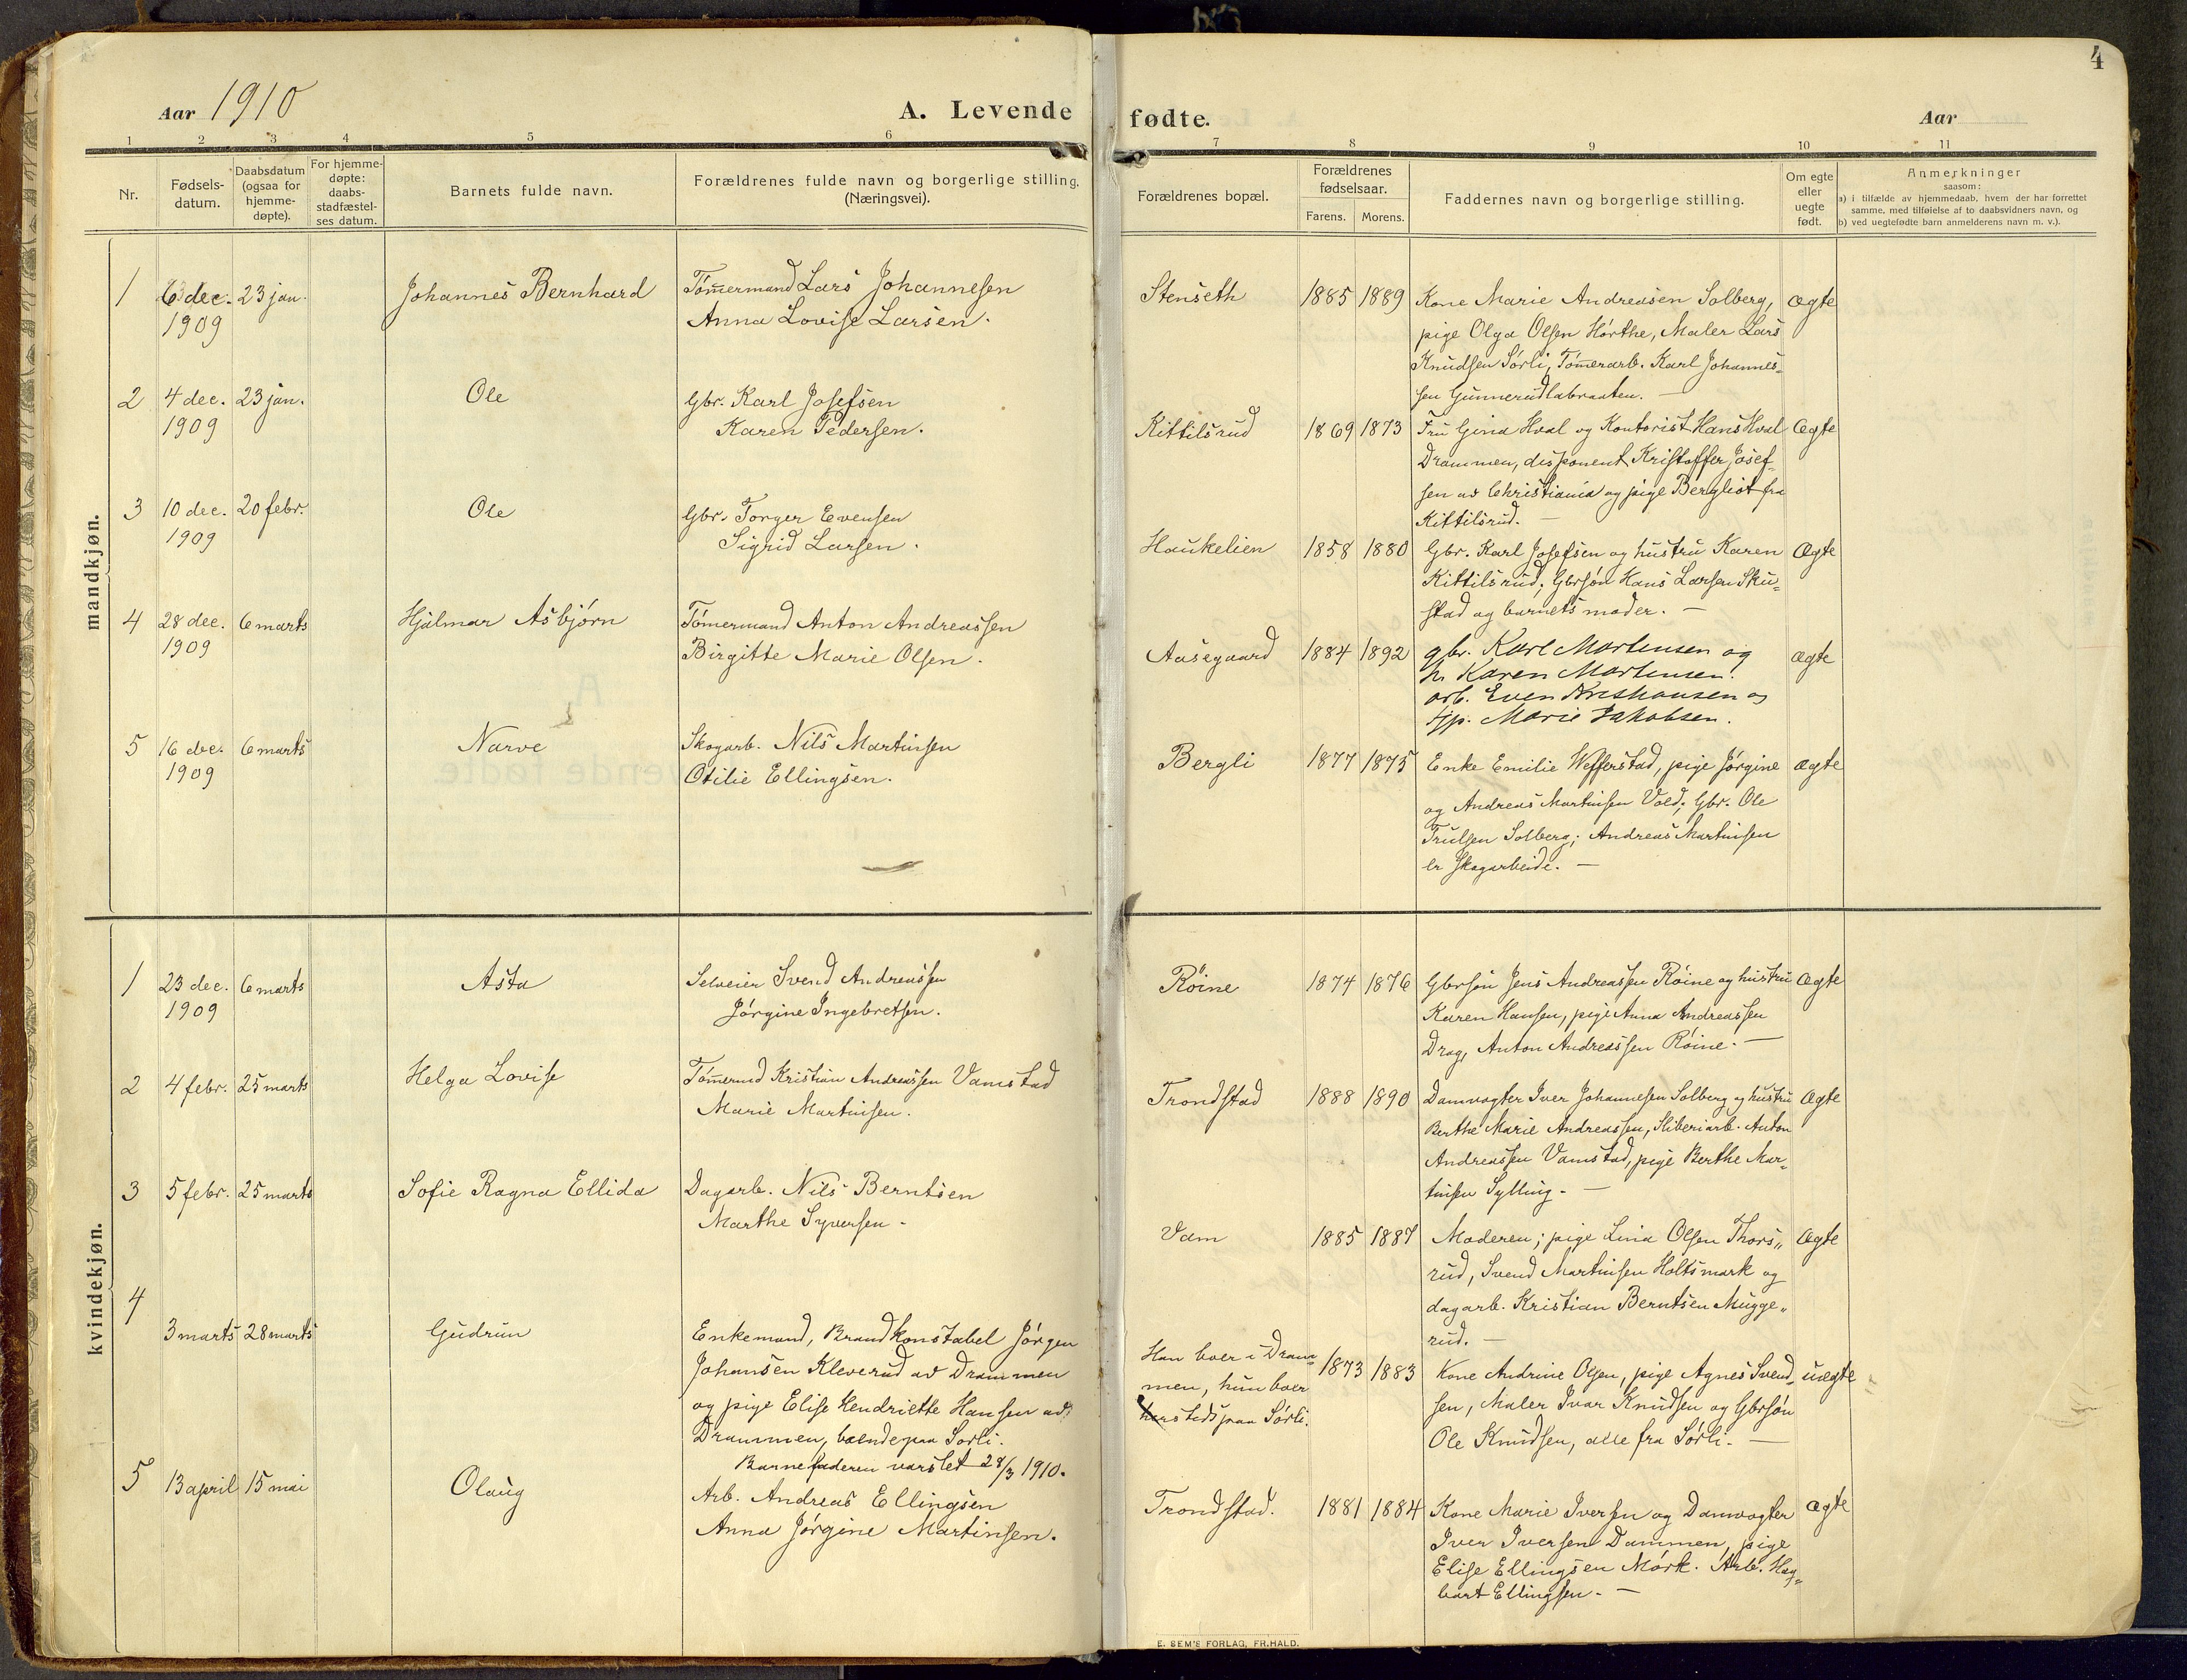 4
Aar 1910
A. Levende fødte.
Aar
1 2 3 4 5 6 7 8 9 10 11
Nr.
Fødsels-
datum.
Daabsdatum
(ogsaa for
hjemme-
døpte).
For hjemme-
døpte:
daabs-
stadfæstel-
ses datum.
Barnets fulde navn.
Forældrenes fulde navn og borgerlige stilling.
(Næringsvei).
Forældrenes bopæl.
Forældrenes
fødselsaar.
Farens. Morens.
Faddernes navn og borgerlige stilling.
Om egte
eller
uegte
født.
Anmerkninger
saasom:
a) i tilfælde av hjemmedaab, hvem der har forrettet
samme, med tilføielse af to daabsvidners navn, og
b) ved uegtefødte barn anmelderens navn m. v.).
mandkjøn.
1 6 dec. 23 jan. Johannes Bernhard Tømmermand Lars Johannesen
1909 Anna Lovise Larsen.
Stenseth 1885 1889 Kone Marie Andreasen Solberg, Ægte
pige Olga Olsen Hørthe, Maler Lars
Knudsen Sørli, Tømerarb. Karl Johannes-
sen Gunnerudlabraaten. —
2 4 dec. 23 jan. Ole Gbr. Karl Josefsen
1909 Karen Pedersen.
Kittilsrud 1869 1873 Fru Gina Hval og Kontorist Hans Hval Ægte
Drammen, disponent Kristoffer Josef-
sen av Christiania og pige Bergliot fra
Kittilsrud. —
3 10 dec. 20 febr. Ole Gbr. Torger Evensen
1909 Sigrid Larsen.
Haukelien 1858 1880 Gbr. Karl Josefsen og hustru Karen Ægte
Kittilsrud, Gbrsøn Hans Larsen Sku-
stad og barnets moder. —
4 28 dec. 6 marts Hjalmar Asbjørn Tømermand Anton Andreassen
1909 Birgitte Marie Olsen.
Aasegaard 1884 1892 gbr. Karl Mortensen og ægte
h. Karen Mortensen.
arb. Even og
tjp. Marie Jakobsen.
5 16 dec. 6 marts Narve Skogarb. Nils Martinsen
1909 Otilie Ellingsen.
Bergli 1877 1875 Enke Emilie Wefferstad, pige Jørgine ægte
og Andreas Martinsen Vold, Gbr. Ole
Trulsen Solberg; Andreas Martinsen
er Skogarbeide. —
kvindekjøn.
1 23 dec. 6 marts Asta Selveier Svend Andreassen
1909 Jørgine Ingebretsen.
Röine 1874 1876 Gbrsøn Jens Andreassen Röine og hustru Ægte
Karen Hansen, pige Anna Andreassen
Drag, Anton Andreassen Röine. —
2 4 febr. 25 marts Helga Lovise Tømermd Kristian Andreassen Vamstad
Marie Martinsen.
Trondstad 1888 1890 Damvogter Iver Johannesen Solberg og hustru Ægte
Berthe Marie Andreassen, Sliberiarb. Anton
Andreassen Vamstad, pige Berthe Mar-
tinsen Sylling. —
3 5 febr. 25 marts Sofie Ragna Ellida Dagarb. Nils Berntsen
Marthe Syversen.
Vam 1885 1887 Moderen; pige Lina Olsen Thors- Ægte
rud, Svend Martinsen Holtsmark og
dagarb. Kristian Berntsen Mugge-
rud. —
4 3 marts 28 marts Gudrun Enkemand, Brandkonstabel Jörgen
Johansen Kleverud av Drammen
og pige Elise Hendriette Hansen av
Drammen, boende paa Sørli.
Barnefaderen varslet 28/3 1910.
Han boer i Dram-
men, hun boer
paa Sørli.
1873 1883 Kone Andrine Olsen, pige Agnes Svend- uægte
sen, Maler Ivar Knudsen og Gbrsøn
Ole Knudsen, alle fra Sørli. —
5 13 april 15 mai Olaug Arb. Andreas Ellingsen
Anna Jørgine Martinsen.
Trondstad. 1881 1884 Kone Marie Iversen og Damvogter ægte
Iver Iversen Dammen, pige
Elise Ellingsen Mørk. Arb. Hag-
bart Ellingsen. —
E. SEM'S FORLAG, FR.HALD.